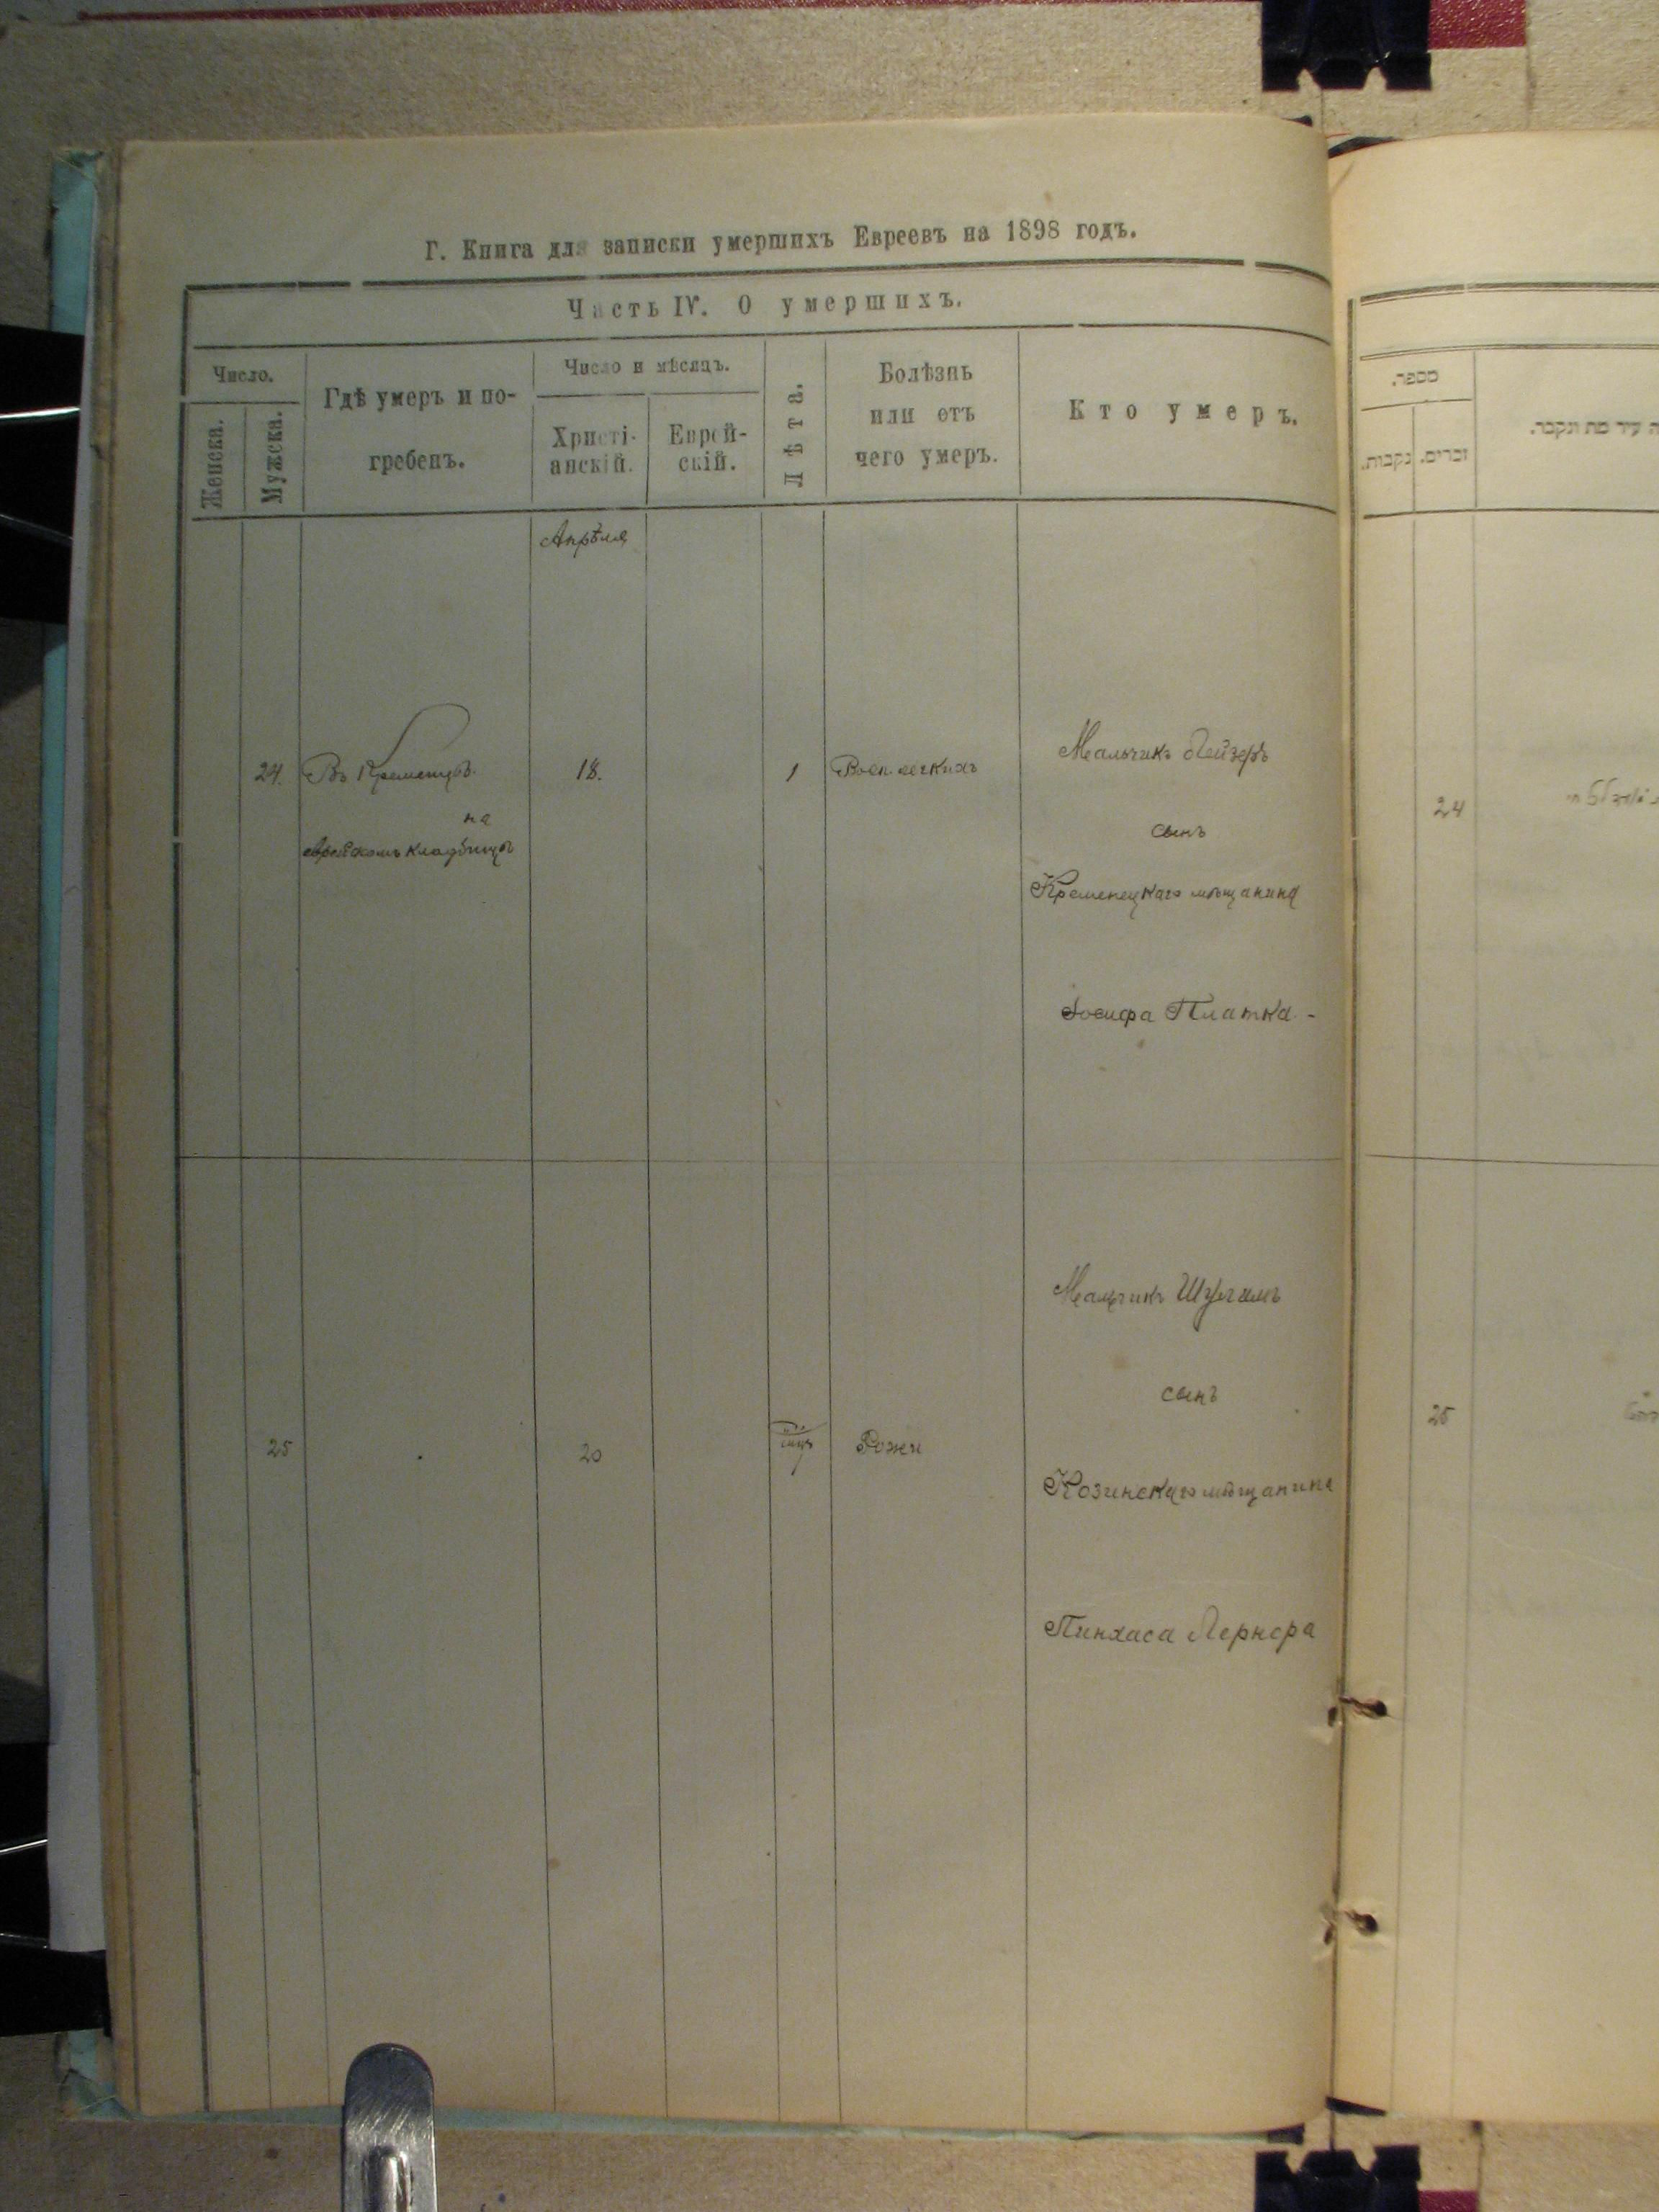 Г. Книга для записки умершихъ Евреевъ на 1898 годъ.
Часть IV. О умершихъ.
Число.
Женска.
Мужска.
Гдѣ умеръ и по-
гребенъ.
Число и мѣсяцъ.
Христі-
анскій.
Еврей-
скій.
Лѣта.
Болѣзнь
или отъ
чего умеръ.
Кто умеръ.
Апрѣля
24.
Въ Кременцѣ
на
еврейскомъ кладбищѣ
18.
1
Восп. легкихъ
Мальчикъ Лейзеръ
сынъ
Кременецкаго мѣщанина
Іосифа Платка
25
20
Рожи
Мальчикъ
сынъ
Козинскаго мѣщанина
Пинхаса Лернера
מספר.
נקבות.
זכרים.
עיר מת ונקבר.
24
25